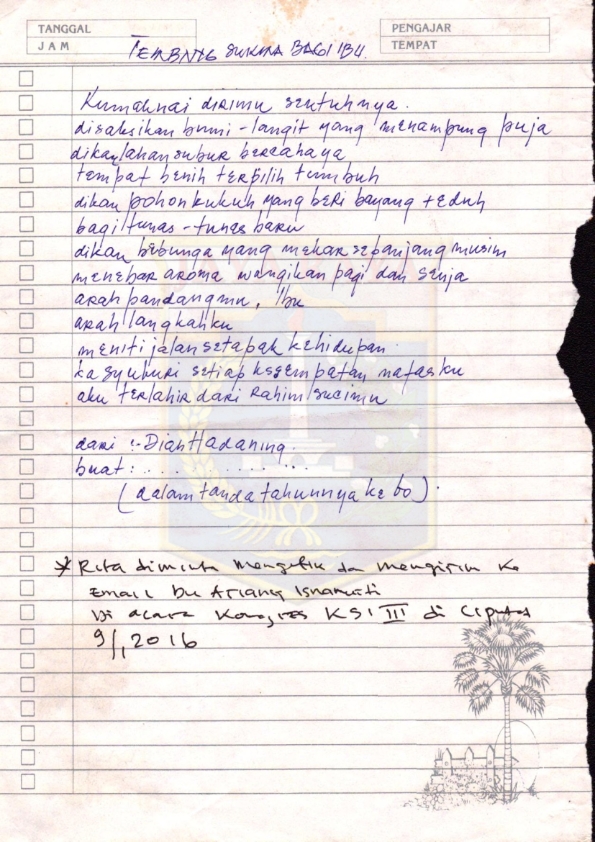 TANGGAL
JAM
PENGAJAR
TEMPAT
TEMBANG SUKMA BAGI IBU.
Kumaknai dirimu sentuhnya.
disaksikan bumi-langit yang menampung puja
dikaulahan subur bercahaya
tempat benih terpilih tumbuh
dikau pohon kukuh yang beri bayang teduh
bagi tunas-tunas baru
dikau bebunga yang mekar sepanjang musim
menebar aroma wangikan pagi dan senja
arah pandangmu, Ibu
arah langkahku
meniti jalan setapak kehidupan.
kasyukuri setiap kesempatan nafasku
aku terlahir dari Rahim sucimu
dari :- Diah Hadaning.
buat: . . . . . . . . . . . .
(dalam tanda tahunnya kebo).
* Rita diminta mengetik dan mengirim Ke
Email bu Ariany Isnamurti
Di acara Kongres KSI III di Ciputat
9/, 2016